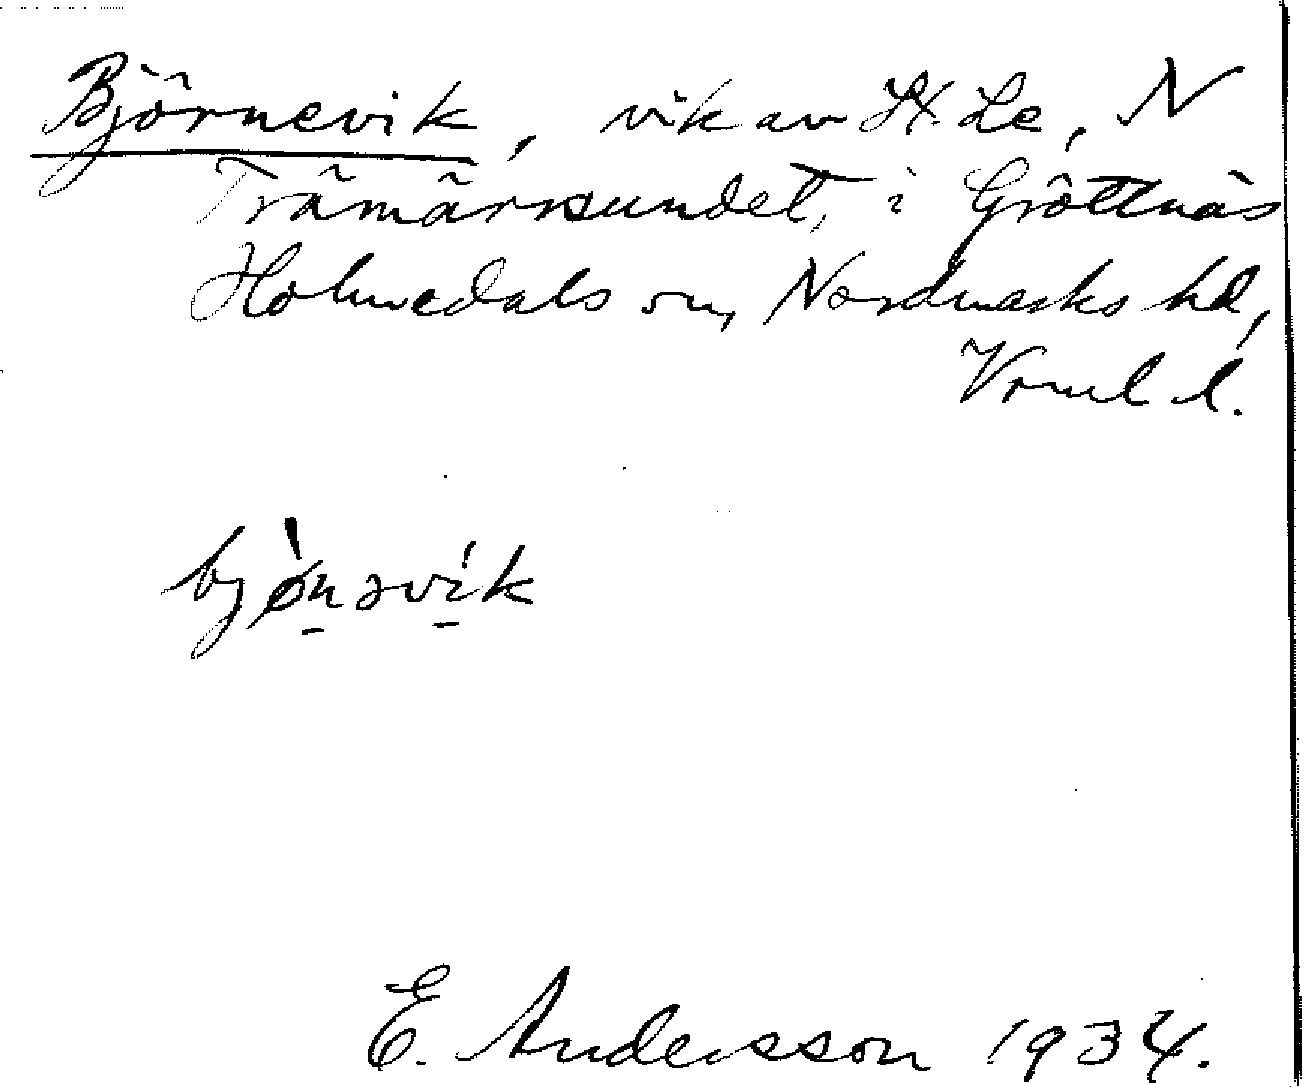 Björnevik, vik av St. Le, N
Trämärksundet, i Gröttnäs
Holmedals sn, Nordmarks hd,
Vrml l.
bjønəvik
E. Andersson 1934.